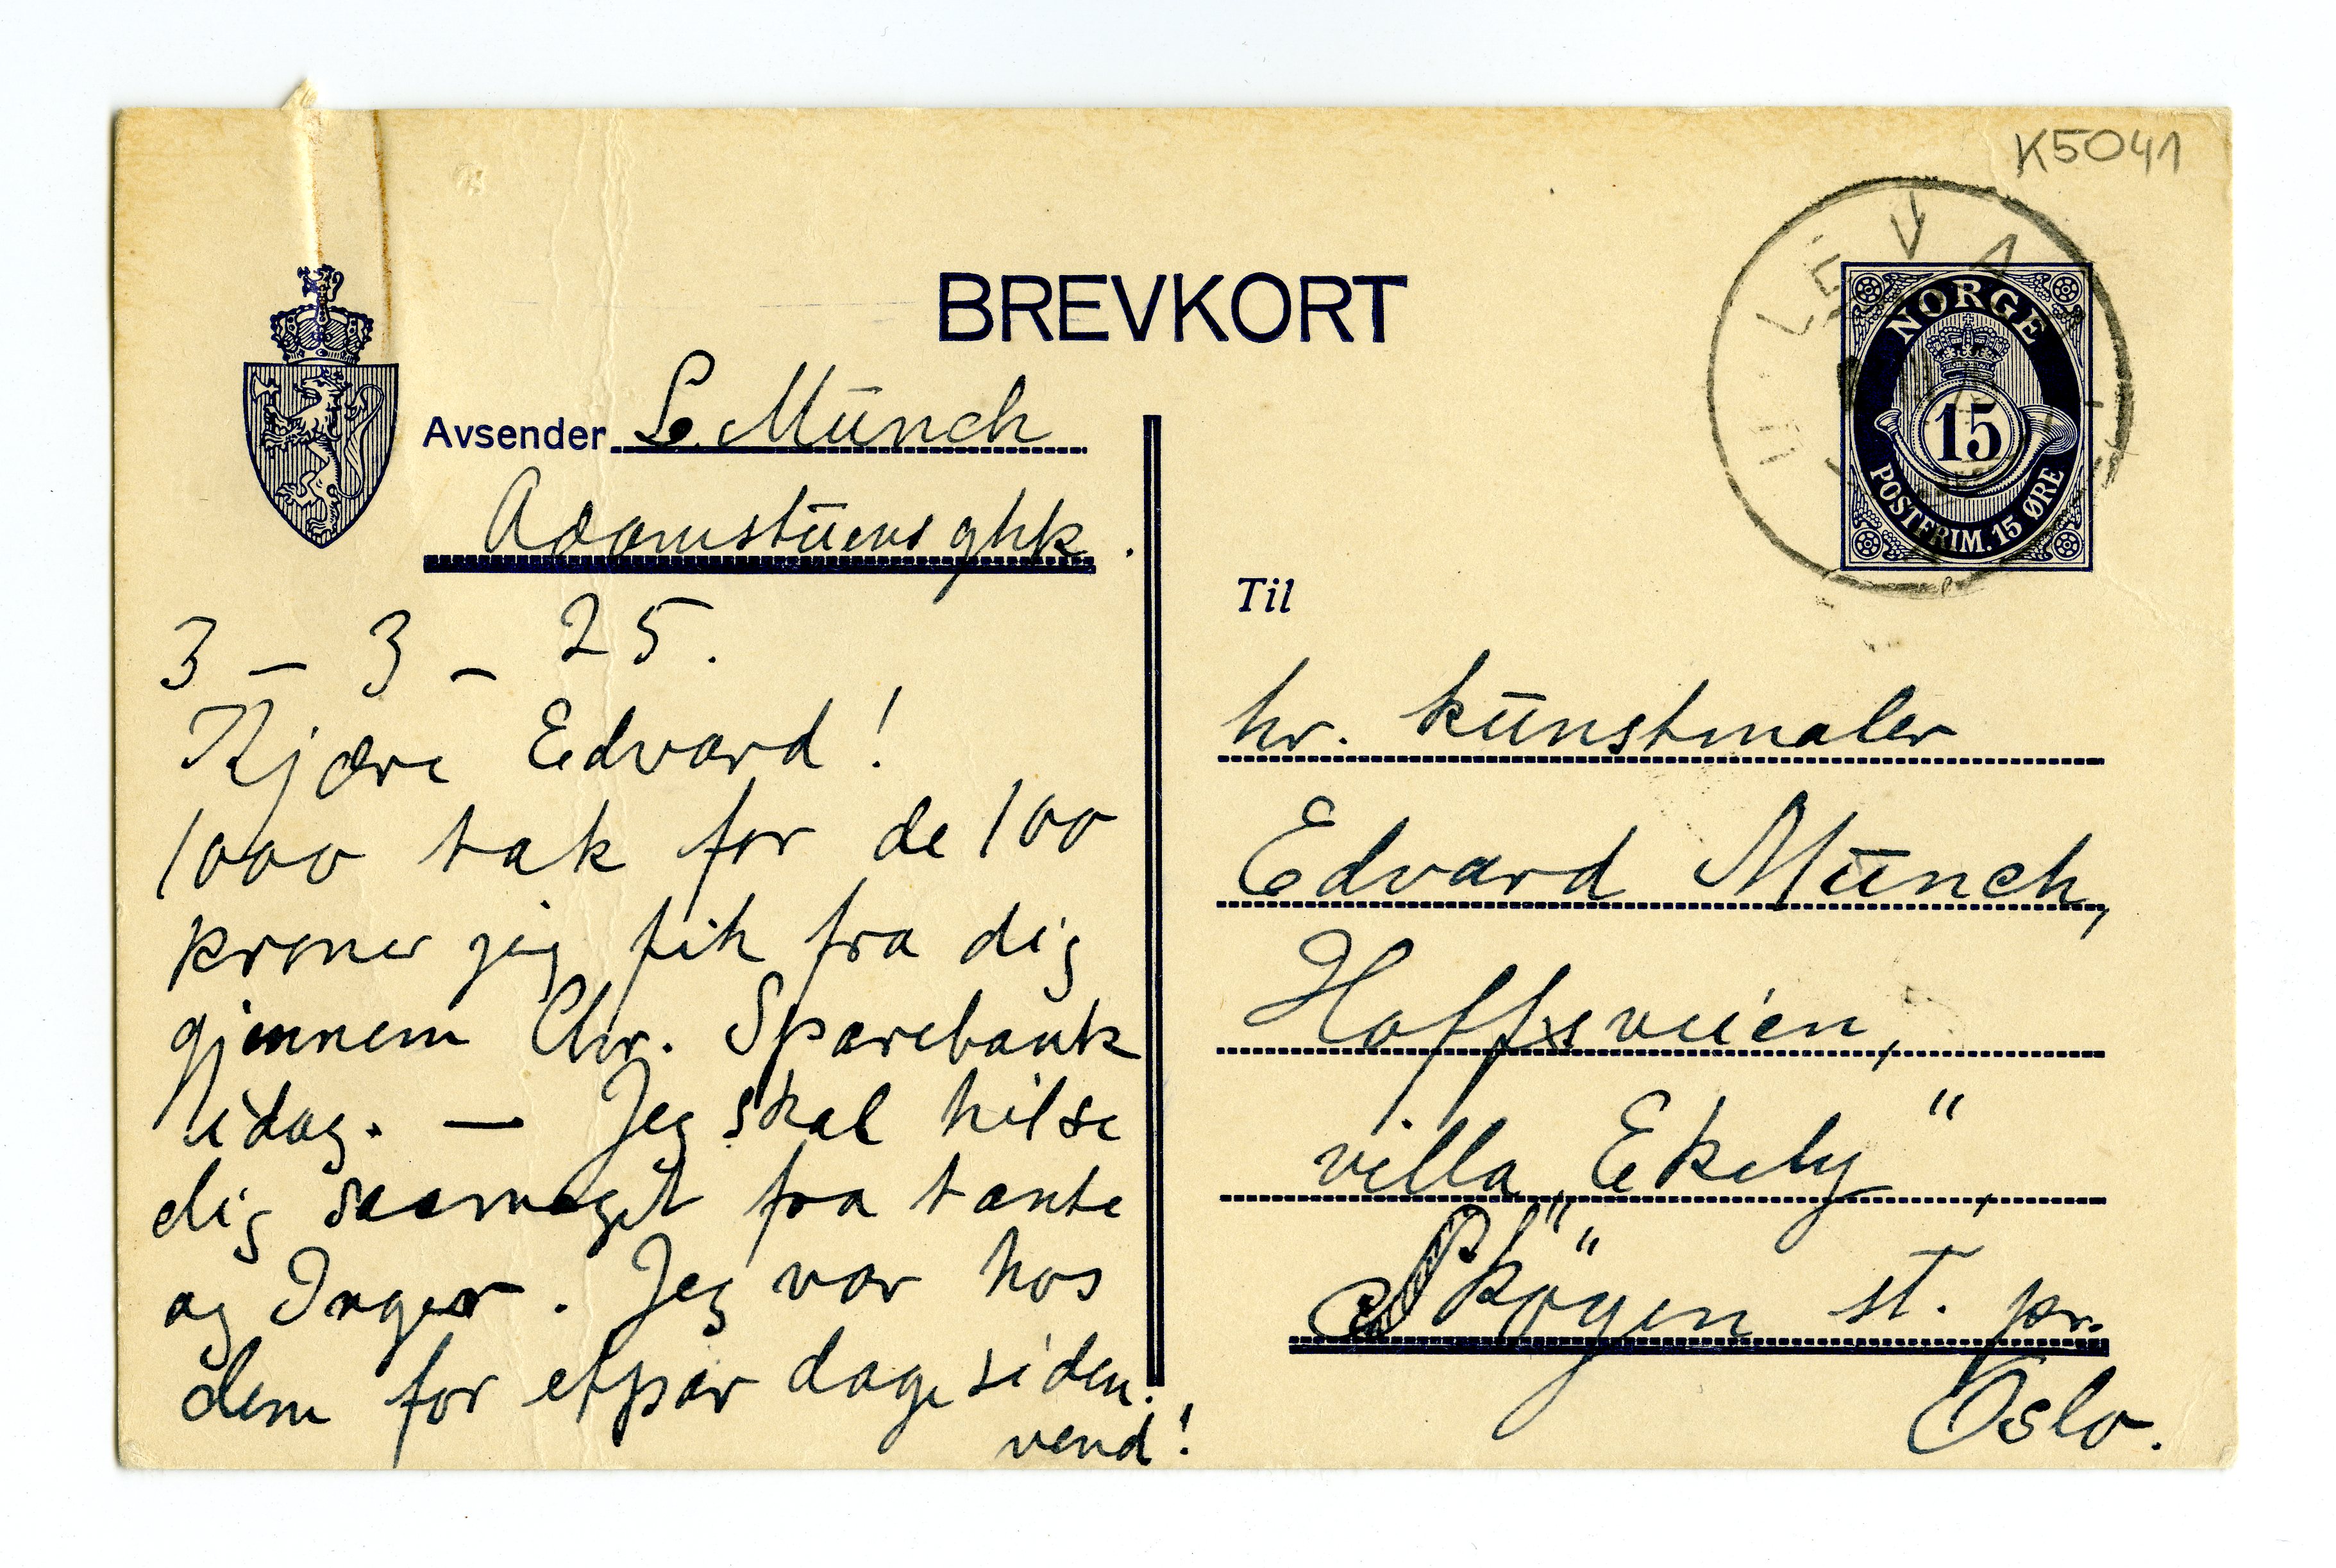 K5041
BREVKORT
NORGE
15
POSTFRIM. 15 ØRE
Avsender L. Münch
Adamstuens ghk.
3 – 3 – 25.
Kjære Edvard!
1000 tak for de 100
kroner jeg fik fra dig
gjennem Chr. Sparebank
idag. — Jeg skal hilse
dig saameget fra tante
og Inger. Jeg var hos
dem for etpar dage siden.
vend!
Til
hr. kunstmaler
Edvard Munch,
Hoffsveien,
villa „Ekely“,
Skøyen st. pr.
Oslo.